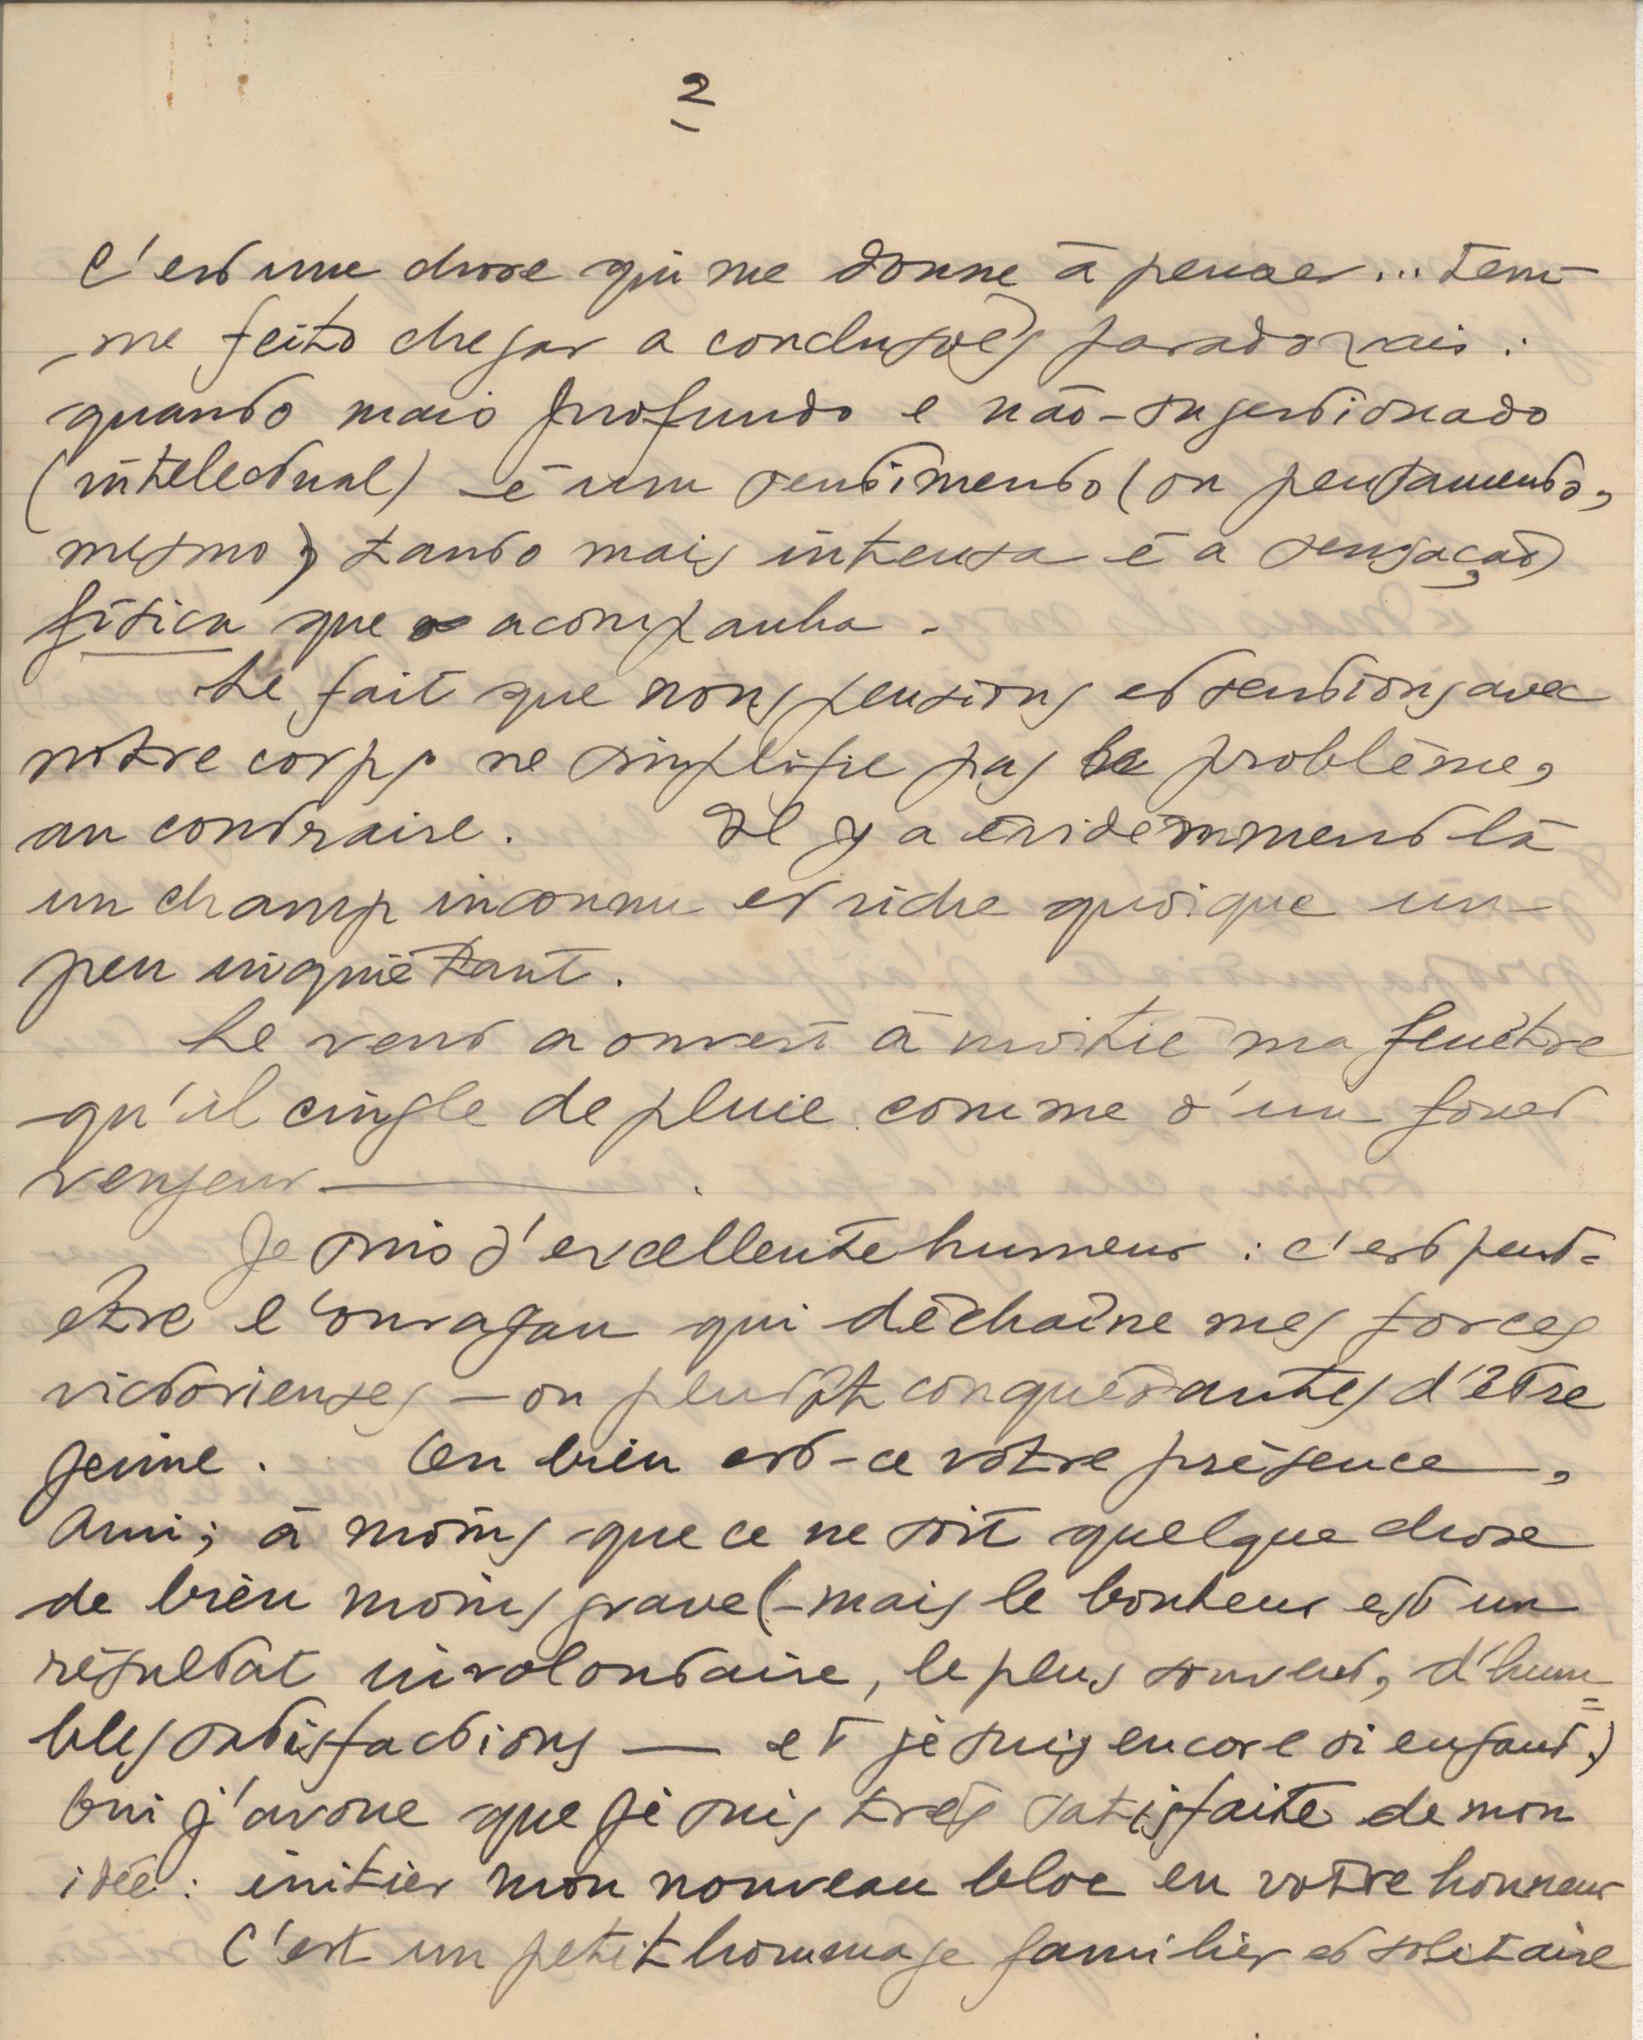 2
C'est une chose qui me donne à penser... tem-
me feito chegar a conclusões paradoxais :
quanto mais profundo e não-sugestionado
(intelectual) - é um sentimento (ou pensamento,
mesmo) tanto mais intensa é a sensação
física que o acompanha.
Le fait que nous pensions et sentions avec
notre corps ne simplifie pas le problème,
au contraire. Il y a évidemment là
un champ inconnu et riche quoique un
peu inquiétant.
Le vent a ouvert à moitié ma fenêtre
qu'il cingle de pluie comme d'un fouet
vengeur ———
Je suis d'excellente humeur : c'est peut-
être l'ouragan qui déchaîne mes forces
victorieuses — ou plutôt conquérantes d'être
jeune. Ou bien est-ce votre présence,
Ami; à moins que ce ne soit quelque chose
de bien moins grave (- mais le bonheur est un
résultat involontaire, le plus souvent, d'hum=
bles satisfactions — et je suis encore si enfant.)
Oui j'avoue que je suis très satisfaite de mon
idée : initier mon nouveau bloc en votre honneur
C'est un petit hommage familier et solitaire